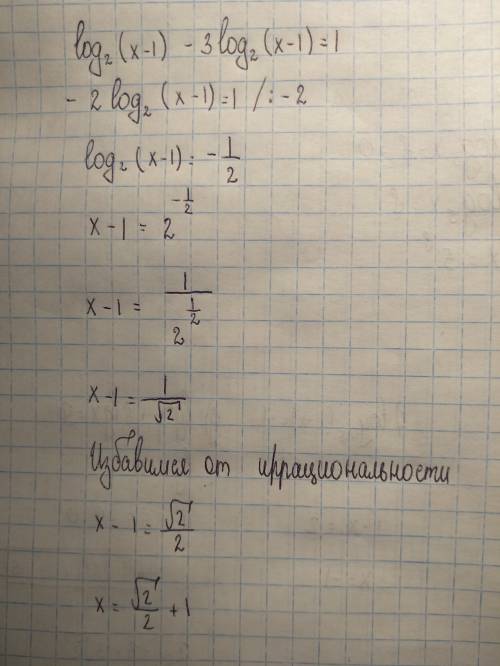 log₂(x-1) - 3log₂(x-1)=1
- 2log₂(x-1)=1 /:-2
log₂(x-1)= -1/2
x-1 = 2^(-1/2)
x-1 = 1/2^(1/2)
x-1 = 1/√2
Избавимся от иррациональности
x - 1 = √2/2
x = √2/2 + 1